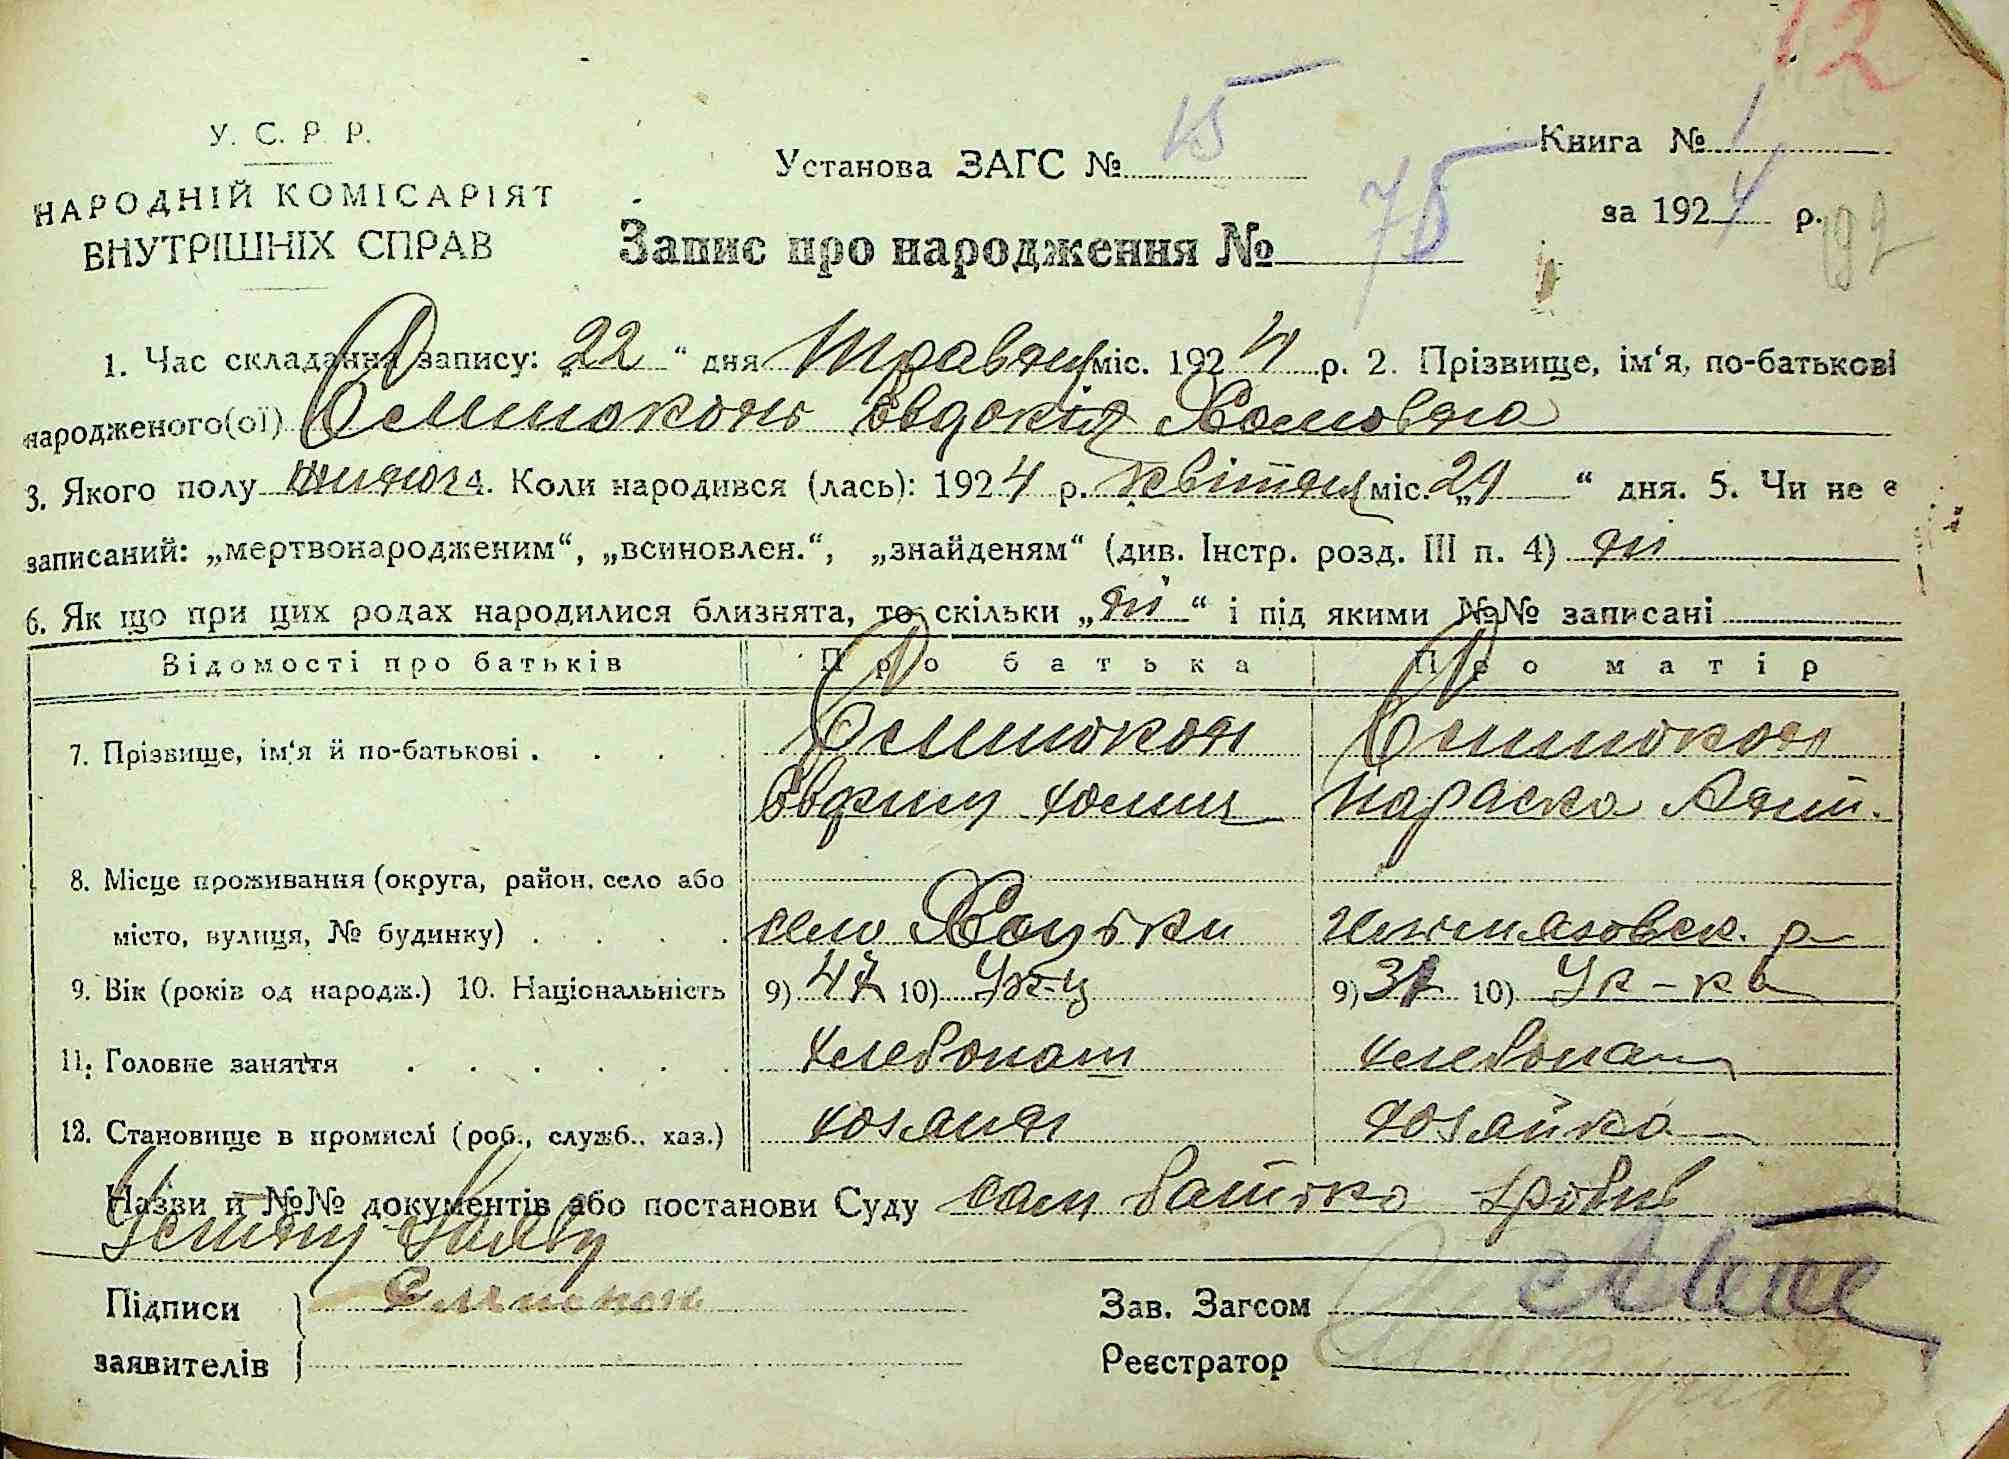 12
У. С. Р. Р.
НАРОДНІЙ КОМІСАРІЯТ
ВНУТРІШНІХ СПРАВ
Установа ЗАГС № 15
Книга № 1
за 1924 р.
192
Запис про народження № 75
1. Час складання запису: „22“ дня Травня міс. 1924 р. 2. Прізвище, ім‘я, по-батькові
народженого(ої) Овдокія Хомовна
3. Якого полу 4. Коли народився (лась): 1924 р. квітня міс. „21“ дня. 5. Чи не є
записаний: „мертвонародженим“, „всиновлен.“, „знайденям“ (див. Інстр. розд. III п. 4) ні
6. Як що при цих родах народилися близнята, то скільки „ні“ і під якими №№ записані
Відомості про батьків Про батька Про матір
7. Прізвище, ім‘я й по-батькові
Параска
8. Місце проживання (округа, район, село або
місто, вулиця, № будинку) село Хоцьки р
9. Вік (років од народж.) 10. Національність 9) 47 10) Ук-ц 9) 37 10) Ук-ка
11. Головне заняття хлебопаш хлебопаш
12. Становище в промислі (роб., служб., хаз.) хозаин хозайка
Назви й №№ документів або постанови Суду сам батько зробив
устну заяву
Підписи
заявителів
Зав. Загсом
Реєстратор